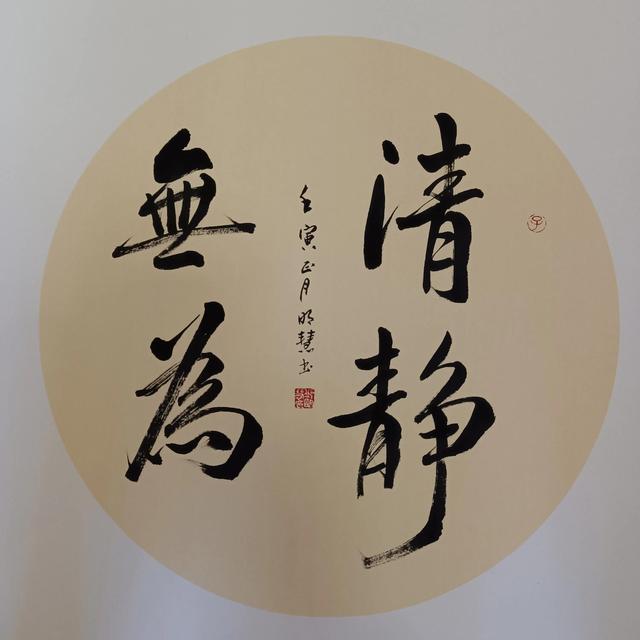 清静
無為
壬寅正月明慧书